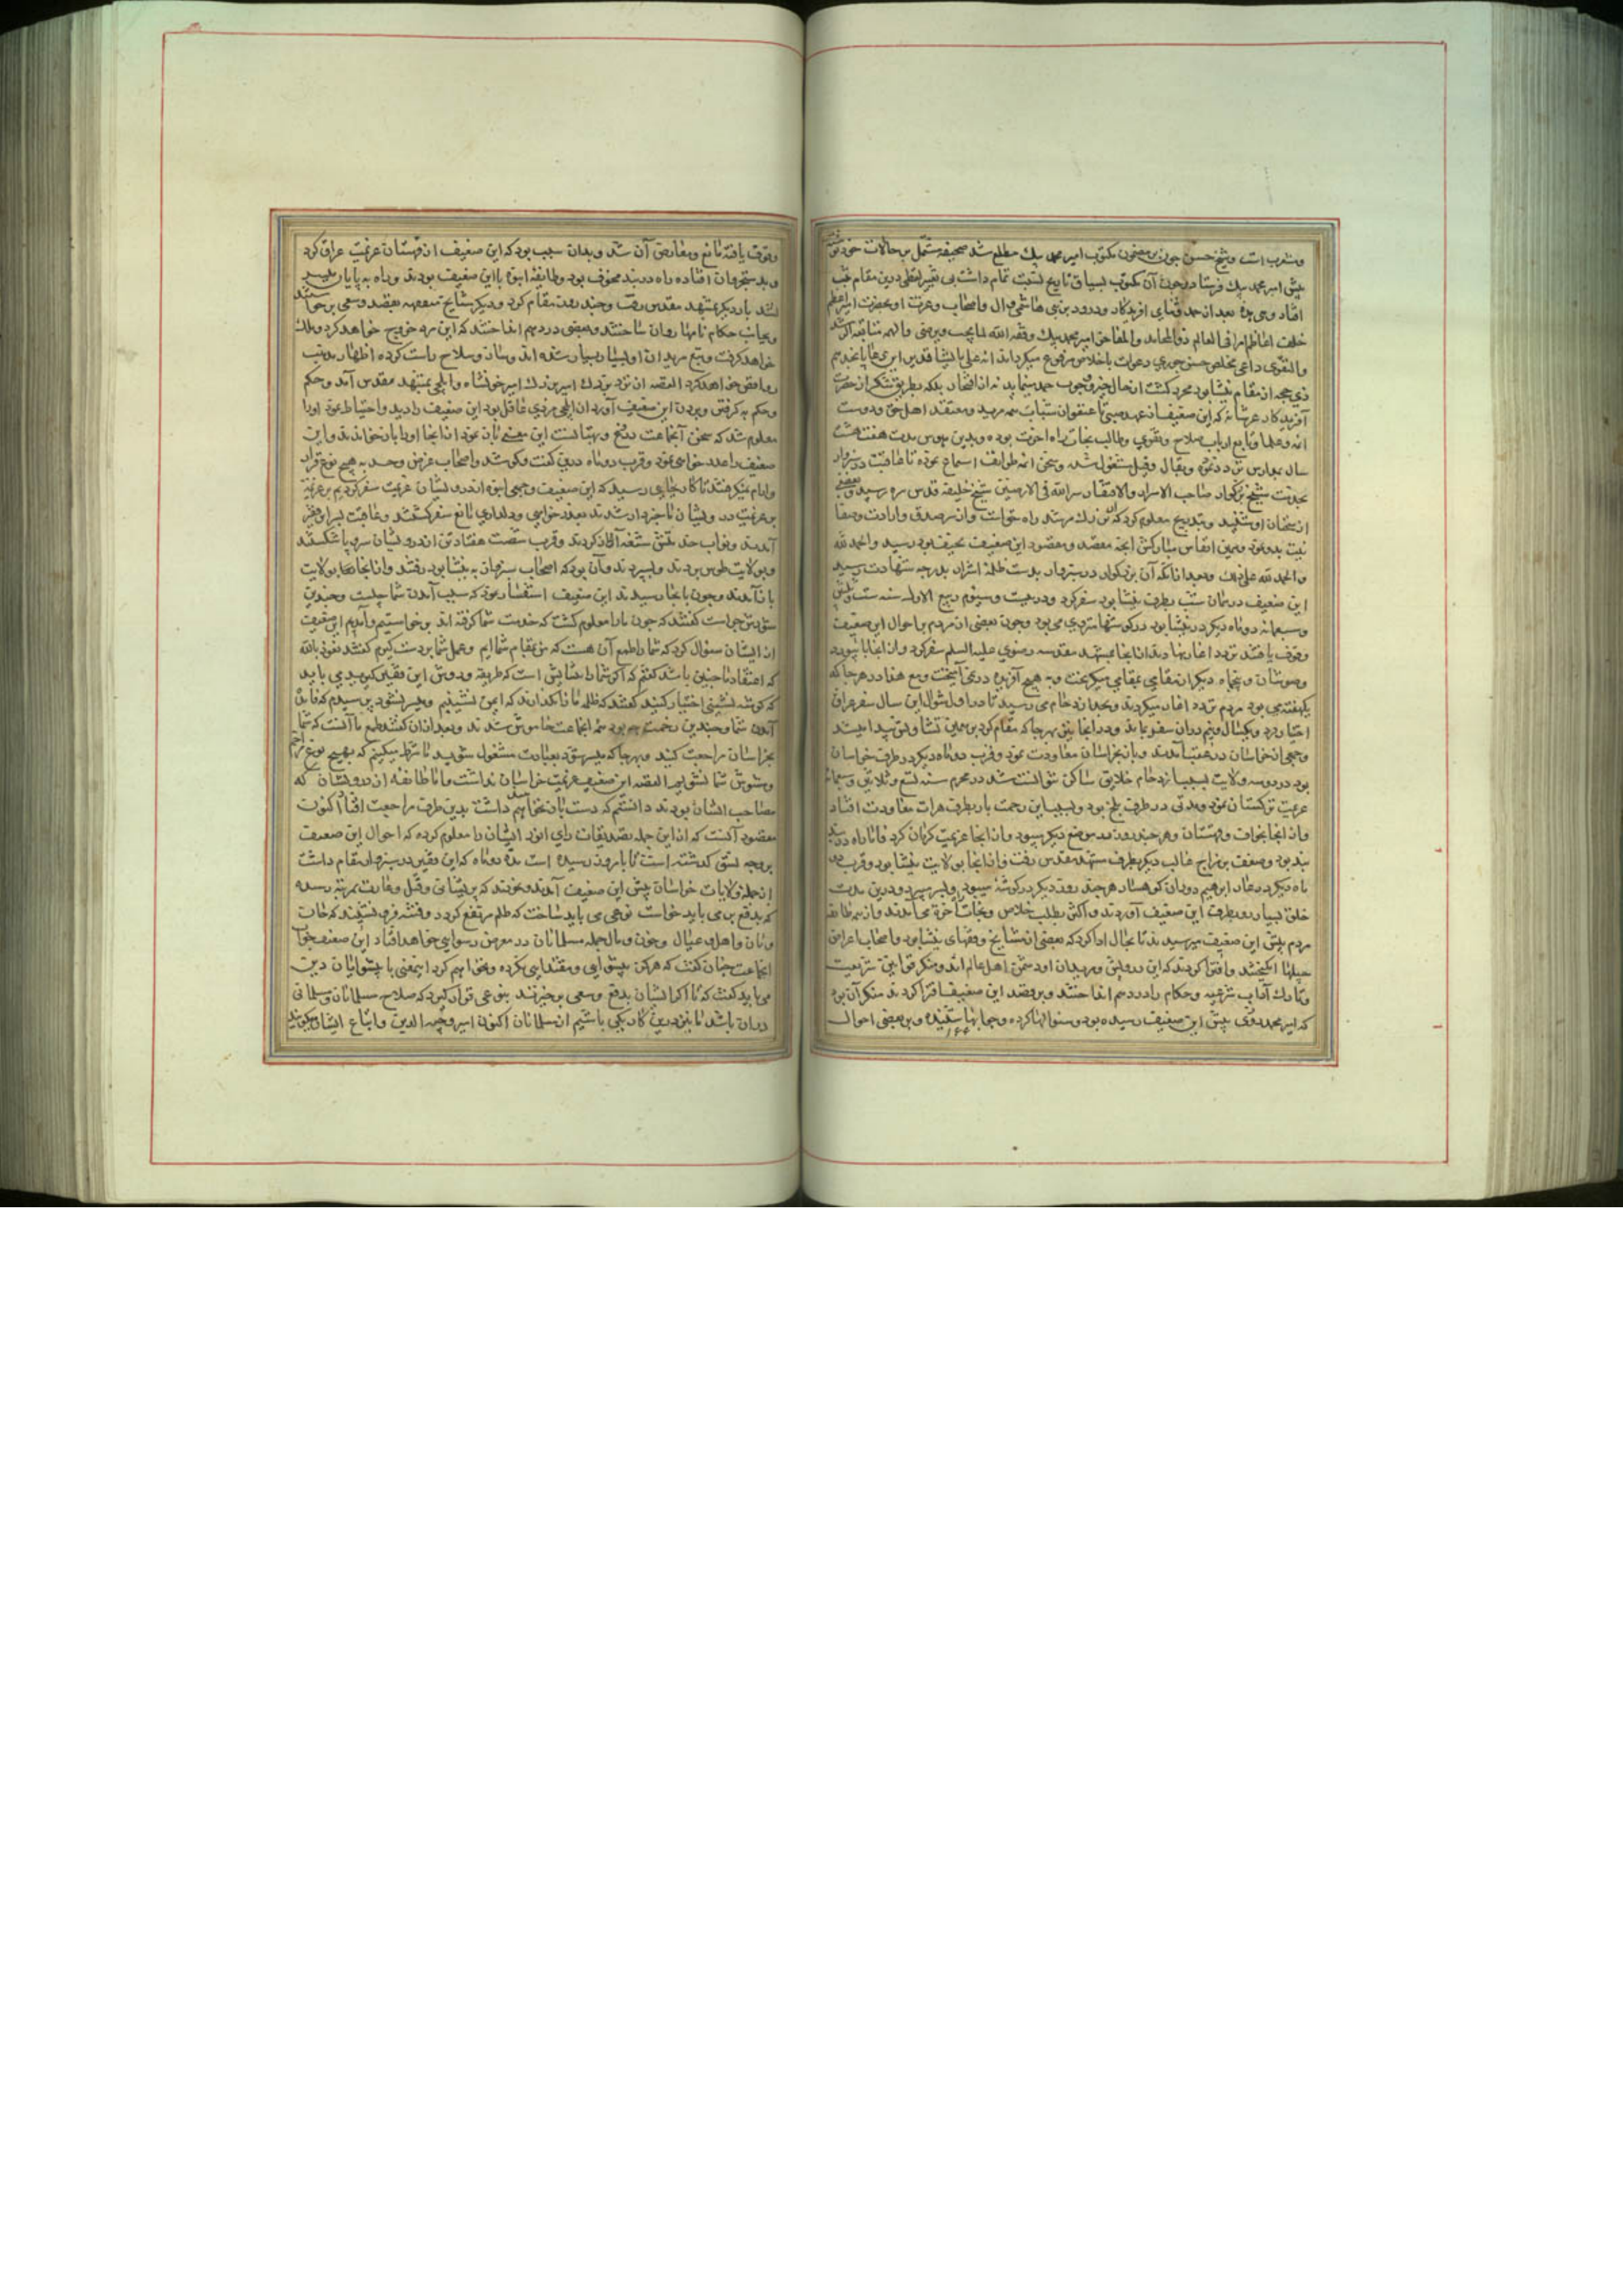 ومشرب است و شیخ حسن چون بر مضمون مکتوب امیر محمد بیک مطلع شد صحیفه مشتمل بر حالات خود
پیش امیر محمد بیک فرستاد و چون آن مکتوب بسیاق تاریخ نسبت تمام داشت بی تغییر لفظی درین مقام ثبت
افتاد وهی هذه بعد از حمد وثنای افریدگار ودرود بر نبی هاشمی وال واصحاب وعترت او بحضرت امیر اعظم
خلف اعاظم امرا فی العالم ذوالمحامد والمفاخر امیر محمد بیک وفقه الله لما یحب ویرضی
والتقوی داعی مخلص حسن جوری دعوات باخلاص مرفوع میگرداند
ذی حجه از مقام نیشابور محرر گشت از حال خیر وجوب حمد مینماید نه از افتخار بلکه بطریق تشکر از حضرت
آفریدگار عز شانه که این ضعیف از عهد صبی تا عنفوان شباب همه مرید ومعتقد اهل حق ودوست
ائمه وعلما وتابع ارباب صلاح وتقوی وطالب نجات راه اخرت بوده وبدین هوس مدت هفت هشت
سال بمدارس تردد نموده وبقال وقیل مشغول شده وسخن ائمه طوایف استماع نموده تا عاقبت در سبزوار
بحضرت شیخ بزرگوار صاحب الاسرار والافتقار سر الله فی الارضین شیخ خلیفه قدس سره رسید وبعضی
از سخنان او شنید وبتدریج معلوم کرد که آن بزرگ مرشد راه خداست واز سر صدق وارادت وصفا
نیت بدو نمود وبیمن انفاس مبارکش انچه مقصد ومقصود این ضعیف نحیف بود رسید والحمد لله
والحمد لله علی ذلک وبعد از آنکه آن بزرگوار در سبزوار بدست ظلمه اشرار بدرجه شهادت رسید
این ضعیف در همان شب بطرف نیشابور سفر کرد ودر بیست وسیوم ربیع الاول سنه ست وثلثین
وسبعمائه دو ماه دیگر در نیشابور در کوشها متردد می بود وچون بعضی از مردم بر احوال این ضعیف
وقوف یافتند تردد اغاز نهادند از انجا بمشهد مقدسه رضوی علیه السلم سفر کرد واز انجا بابیورد
وخبوشان وپنجماه دیگر از مقامی بمقامی میگریخت وبه هیچ آفریده درنمی آمیخت ومع هذا در هر جا که
یکهفته می بود مردم تردد اغاز میکردند وبحد ازدحام می رسید تا در اول شوال این سال سفر عراق
اختیار کرد ویکسال ونیم در ان سفر بماند ودر انجا نیز بهر جا که مقام کرد بر همین
وجمعی از خراسان در عقب آمدند وباز بخراسان معاودت نمود وقرب دو ماه دیگر در طرف خراسان
بود در دو سه ولایت بسبب ازدحام خلایق ساکن نتوانست شد در محرم سنه تسع وثلاثین وسبعمائه
عزیمت ترکستان نمود ومدتی در طرف بلخ بود وبسبب این زحمت باز بطرف هرات معاودت افتاد
واز انجا بخواف وقهستان وهر چند روز بموضع دیگر میبود واز انجا عزیمت کرمان کرد فاما راه در
بند بود وضعف بر مزاج غالب دیگر بطرف مشهد مقدس رفت واز انجا بولایت نیشابور وقرب دو
ماه دیگر در غار ابراهیم ودر ان کوهسار هر چند روز دیگر در کوشه میبود وبسر میبرد ودرین مدت
خلق بسیار رو بطرف این ضعیف آوردند واکثر بطلب خلاص ونجات آخرة می آمدند واز هر طایفه
مردم پیش این ضعیف میرسیدند تا بحال ادا کرد که بعضی از مشایخ وفقهای نیشابور واصحاب اعراض
حیلها انگیختند وافترا کردند که این درویش ومریدان او دشمن اهل عالم اند ومنکر قوانین شریعت
وتارک آداب شرعیه وحکام را در دهم انداختند وبر قصد این ضعیف افترا کردند منکر آن بود
که امیر محمد پیش این ضعیف رسیده بود وسئوالها کرده وجوابها شنیده وبر بعضی احوال
وقوف یافته مانع ومعارض آن شد وبدان سبب بود که این ضعیف از قهستان عزیمت عراق کرد
وراه در بند مخوف بود وطایفه انبوه با این ضعیف بودند وراه به پایان
باز دیگر بمشهد مقدس رفت وچند روز مقام کرد ودیگر مشایخ متفقهه بقصد وسعی برخواستند
وبجانب حکام نامها روان ساختند وبعضی در دهم انداختند که این مرد خروج خواهد کرد وملک
خواهد گرفت وتبع مریدان او بسیار بسیار شده اند وساز وسلاح راست کرده اظهار مذهب
روافض خواهد کرد القصه از نزد بزرگ امیر بزرگ امیر خونشاه را ایلچی بمشهد مقدس آمد وحکم
وحکم به گرفتن وبردن این ضعیف آورد ان ایلچی مردی عاقل بود این ضعیف را دید واحتیاط نمود اورا
معلوم شد که سخن آنجماعت دروغ وبهتانست این معنی باز نمود از انجا اورا باز خواندند واین
ضعیف را عذر خواهی نمود وقرب دو ماه درین گفت وگو شد واصحاب غرض وحسد به هیچ نوع قرار
وارام نمیگرفتند تا کار بجایی رسید که این ضعیف وجمعی انبوه از درویشان عزیمت سفر کردیم بر عزیمت
بر عزیمت درویشان تا خبردار شدند بعذر خواهی ودلداری مانع سفر گشتند
آمدند ونواب حد عشق شعبه اغاز کردند وقرب شصت هفتاد تن از درویشان سر وپا شکستند
وبولایت طوس بردند وسپردند وآن بود که اصحاب سبزوار به نیشابور رفتند واز انجا بولایت
باز آمدند وچون بانجا رسیدند این ضعیف استفسار نمود که سبب آمدن شما چیست وچندین
شورش چراست گفتند که چون ما را معلوم گشت که خدمت شما گرفته اند برخواستیم وآمدیم این ضعیف
از ایشان سئوال کرد که شما را طمع آن هست که من بمقام شما ایم وعمل شما بر دست گیرم گفتند نعوذ بالله
که اعتقاد ما چنین باشد گفتم که اگر شما را آسایش است که طریقه وروش این فقیر گیرید می باید
که کوشه نشینی اختیار کنید گفتند که ظلمه ما را نگذارند که ایمن نشینیم ومیسر نشود پرسیدم که فایده
آمدن شما وچندین زحمت چه بود همه انجماعت خاموش شدند وبعد از ان گفتند طمع ما آنست که شما
بخراسان مراجعت کنید وبهر جا که میسر شود بعبادت مشغول شوید ما شرط میکنیم که بهیچ نوع مزاحم
ومشوش شما نشویم القصه این ضعیف عزیمت خراسان نداشت واما طایفه از درویشان که
مصاحب ایشان بودند دانستم که دست باز نخواهم داشت بدین طرف مراجعت افتاد اکنون
مقصود آنست که از این جمله بتصدیقات رای انور ایشان را معلوم کرده که احوال این ضعیف
بر وجه نسق گذشته است تا بامروز رسیده است مدة دو ماه که این فقیر در سبزوار مقام داشت
از جمله ولایات خراسان پیش این ضعیف آمدند ونمودند که پریشانی وقتل وغارت بمرتبه رسیده
که بدفع بر می باید خواست نوعی می باید ساخت که ظلم مرتفع گردد وفتنه فرو نشیند که خان
ومان واهل وعیال وخون ومال جمله مسلمانان در معرض رسوایی خواهد افتاد این ضعیف جواب
انجماعت چنان گفت که هرگز پیشوایی ومقتدایی نکرده ونخواهم کرد اینمعنی با پیشوایان دین
می باید گفت که تا اگر ایشان بدفع وسعی برخیزند بنوعی قرار گیرد که صلاح مسلمانان ومسلمانی
در ان باشد ما نیز درین کار یکی باشیم از مسلمانان اکنون امیر وجیه الدین واتباع ایشان میگویند